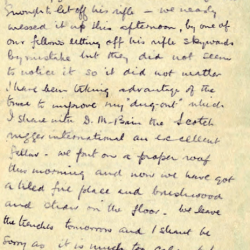 to let off his rifle – we nearly
messed it up this afternoon, by one of
our fellows letting off his rifle skywards
by mistake but they did not seem
to notice it so it did not matter
I have been taking advantage of the
truce to improve my 'dug-out' which
I share with D. M. Bain the Scotch
rugger international an excellent
fellow – we put on a proper roof
this morning and now we have got
a tiled fire place and brushwood
and straw on the floor. We leave
the trenches tomorrow and I shan't be
sorry as it is much too